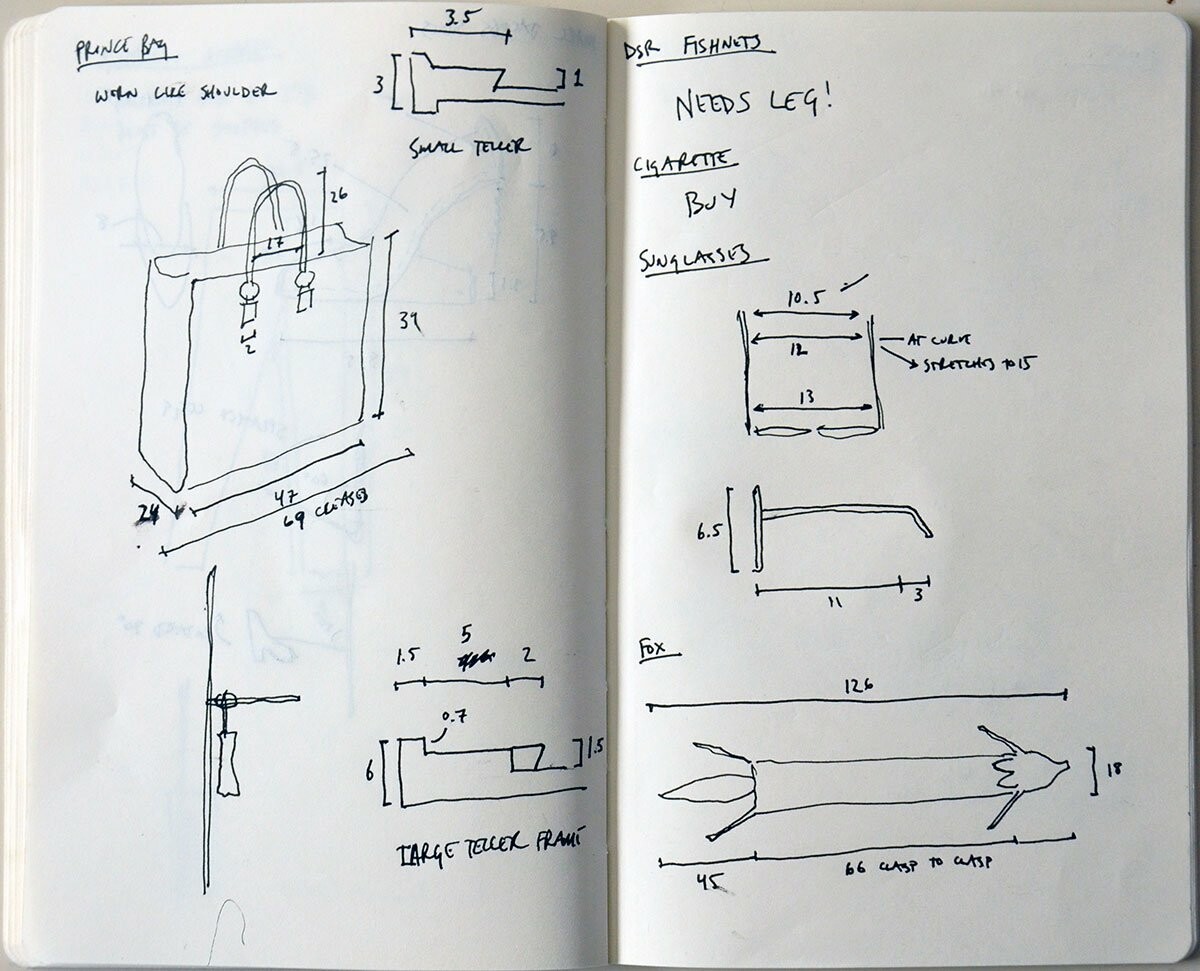 PRINCE BAG
WORN LIKE SHOULDER
3.5
3
1
SMALL TELLER
26
17
39
2
24
47
69 CREASED
5
1.5
2
0.7
6
1.5
LARGE TELLER FRAME
DSR FISHNETS
NEEDS LEG!
CIGARETTE
BUY
SUNGLASSES
10.5
12
AT CURVE
STRETCHES TO 15
13
6.5
11
3
FOX
126
18
45
66 CLASP TO CLASP